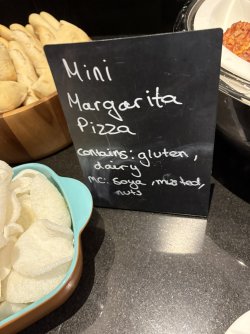 Mini
Margarita
Pizza
contains: gluten,
dairy
MC: Soya, musted,
nuts